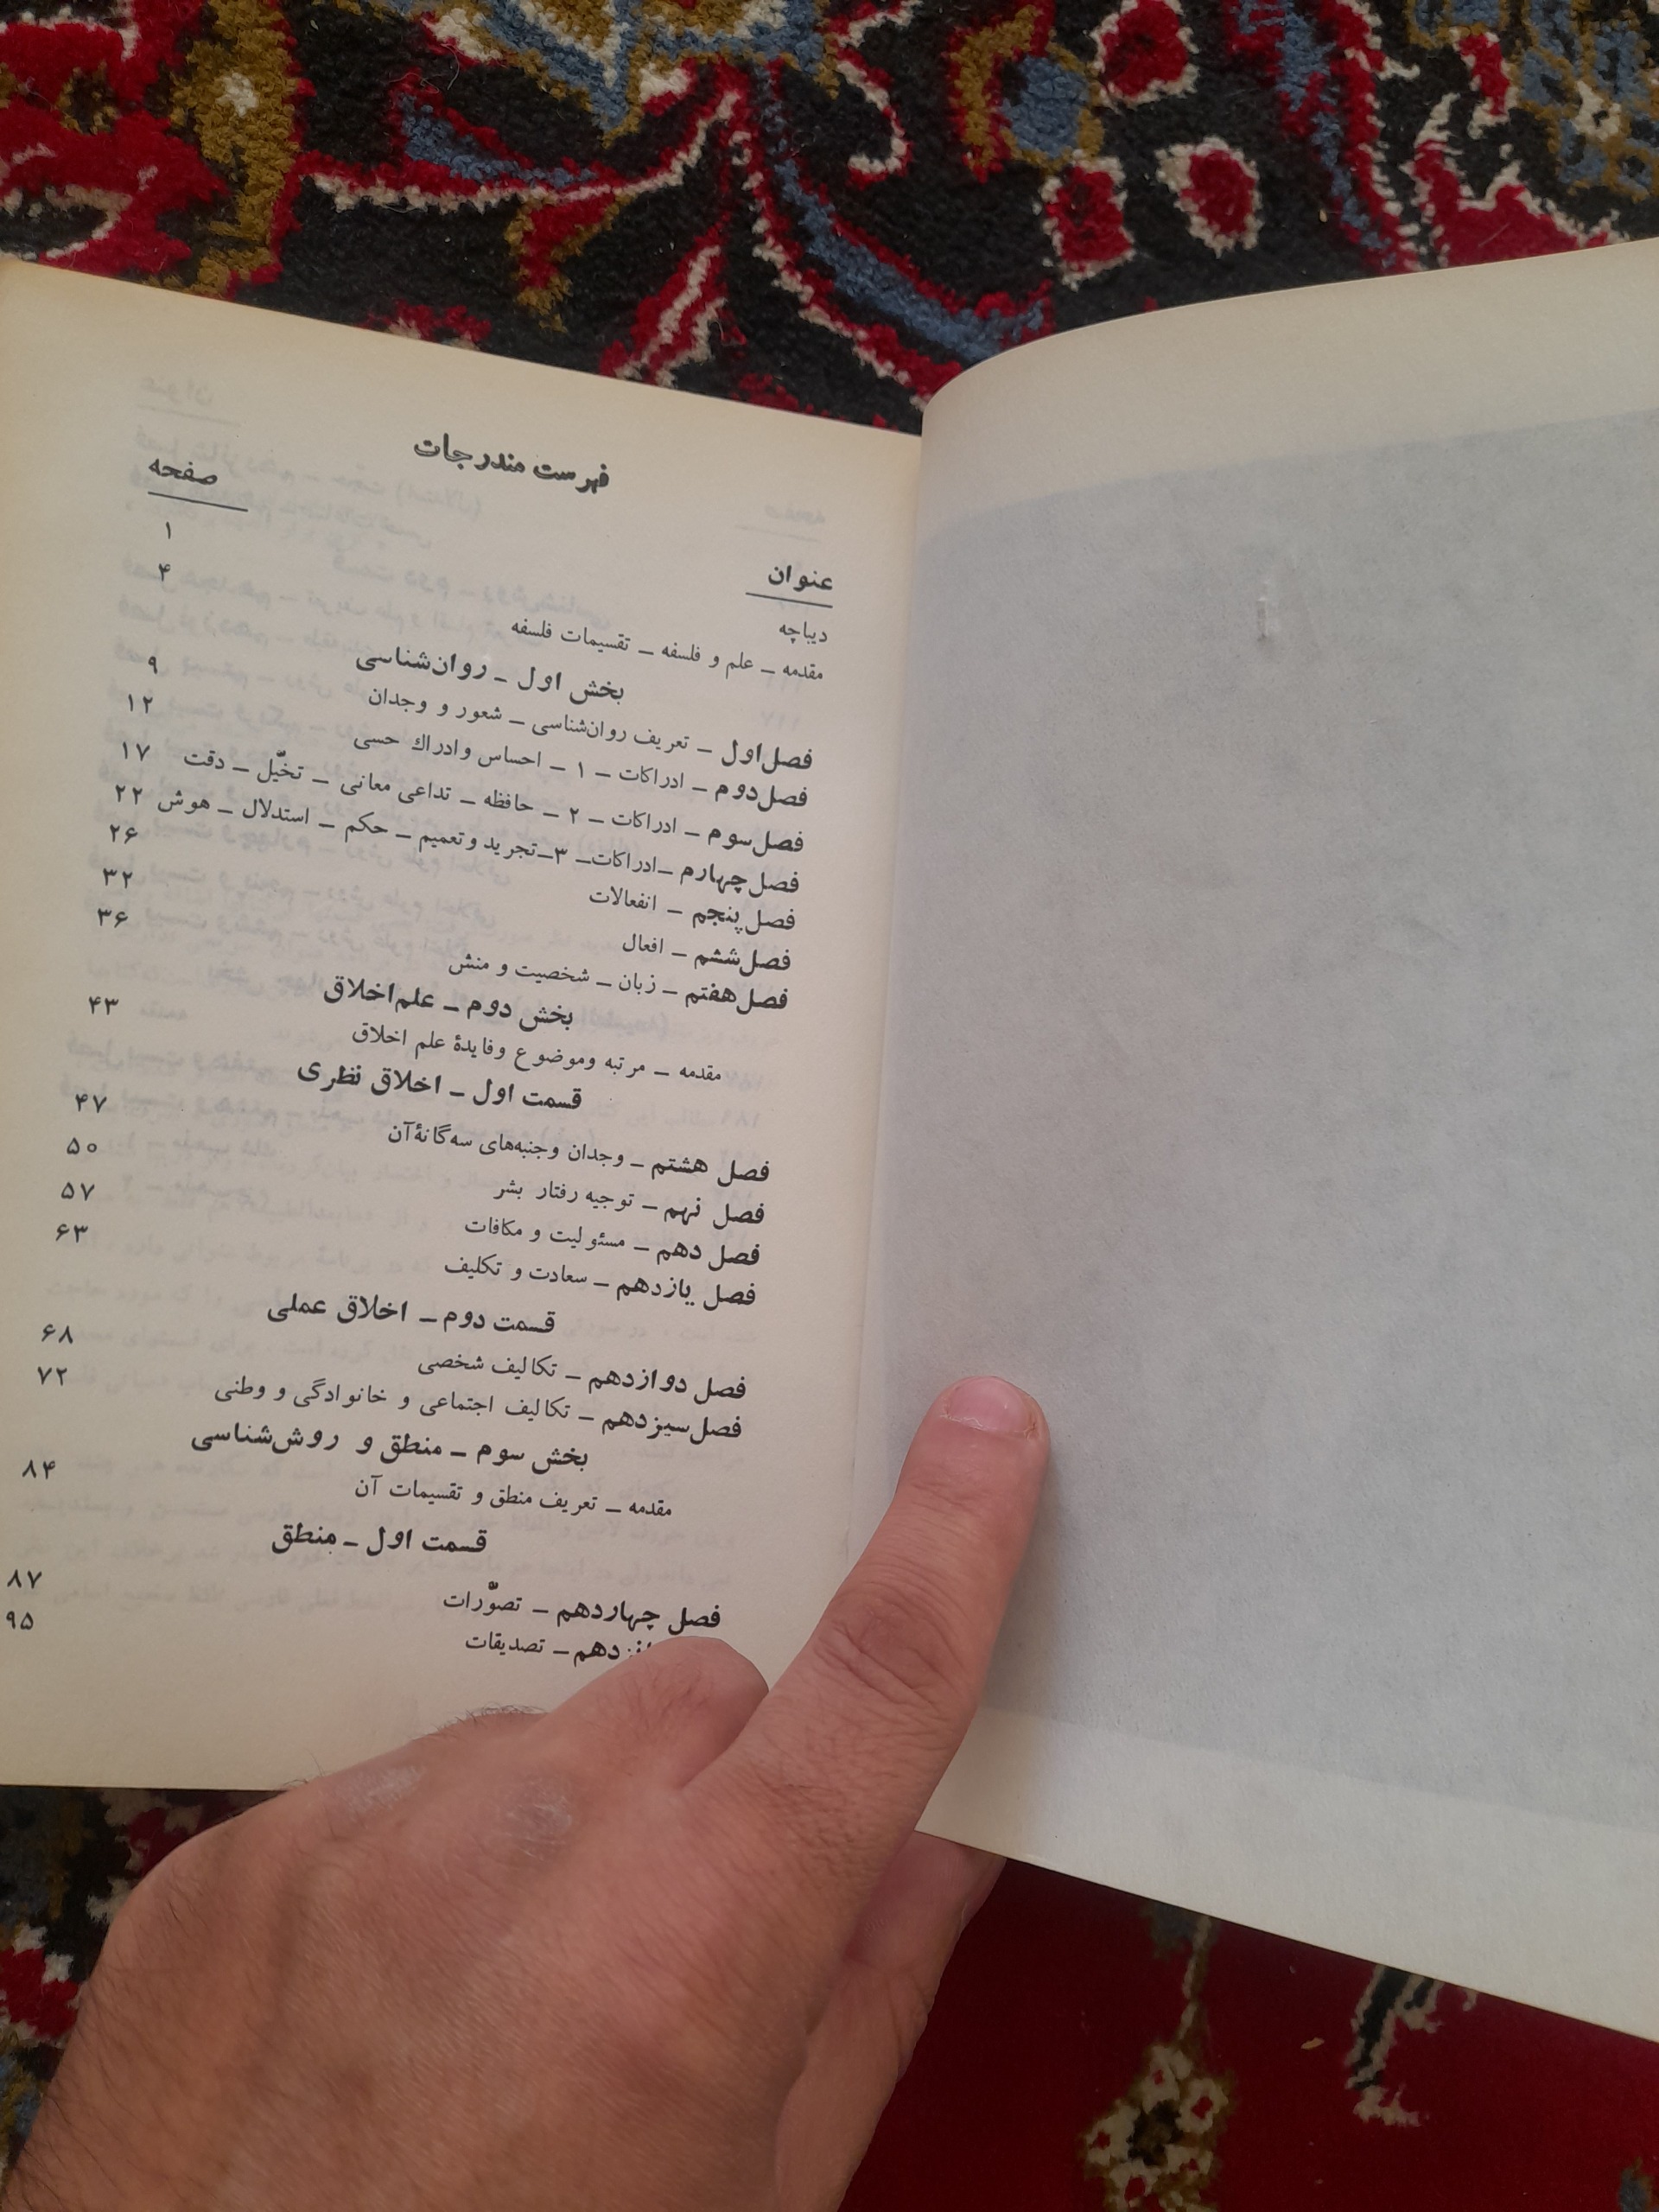 فهرست مندرجات
عنوان صفحه
دیباچه ۱
مقدمه ـ علم و فلسفه ـ تقسیمات فلسفه ۴
بخش اول ـ روان‌شناسی
فصل اول ـ تعریف روان‌شناسی ـ شعور و وجدان ۹
فصل دوم ـ ادراکات ـ ۱ ـ احساس و ادراك حسی ۱۲
فصل سوم ـ ادراکات ـ ۲ ـ حافظه ـ تداعی معانی ـ تخیّل ـ دقت ۱۷
فصل چهارم ـ ادراکات ـ ۳ ـ تجرید و تعمیم ـ حکم ـ استدلال ـ هوش ۲۲
فصل پنجم ـ انفعالات ۲۶
فصل ششم ـ افعال ۳۲
فصل هفتم ـ زبان ـ شخصیت و منش ۳۶
بخش دوم ـ علم اخلاق
مقدمه ـ مرتبه وموضوع وفایدهٔ علم اخلاق ۴۳
قسمت اول ـ اخلاق نظری
فصل هشتم ـ وجدان وجنبه‌های سه‌گانهٔ آن ۴۷
فصل نهم ـ توجیه رفتار بشر ۵۰
فصل دهم ـ مسئولیت و مکافات ۵۷
فصل یازدهم ـ سعادت و تکلیف ۶۳
قسمت دوم ـ اخلاق عملی
فصل دوازدهم ـ تکالیف شخصی ۶۸
فصل سیزدهم ـ تکالیف اجتماعی و خانوادگی و وطنی ۷۲
بخش سوم ـ منطق و روش‌شناسی
مقدمه ـ تعریف منطق و تقسیمات آن ۸۴
قسمت اول ـ منطق
فصل چهاردهم ـ تصوّرات ۸۷
ـ تصدیقات ۹۵